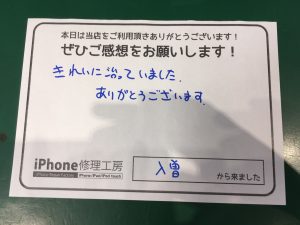 本日は当店をご利用頂きありがとうございます!
ぜひご感想をお願いします!
きれいに治っていました.
ありがとうございます.
iPhone修理工房
iPhone/iPad/iPod touch
入曽
から来ました